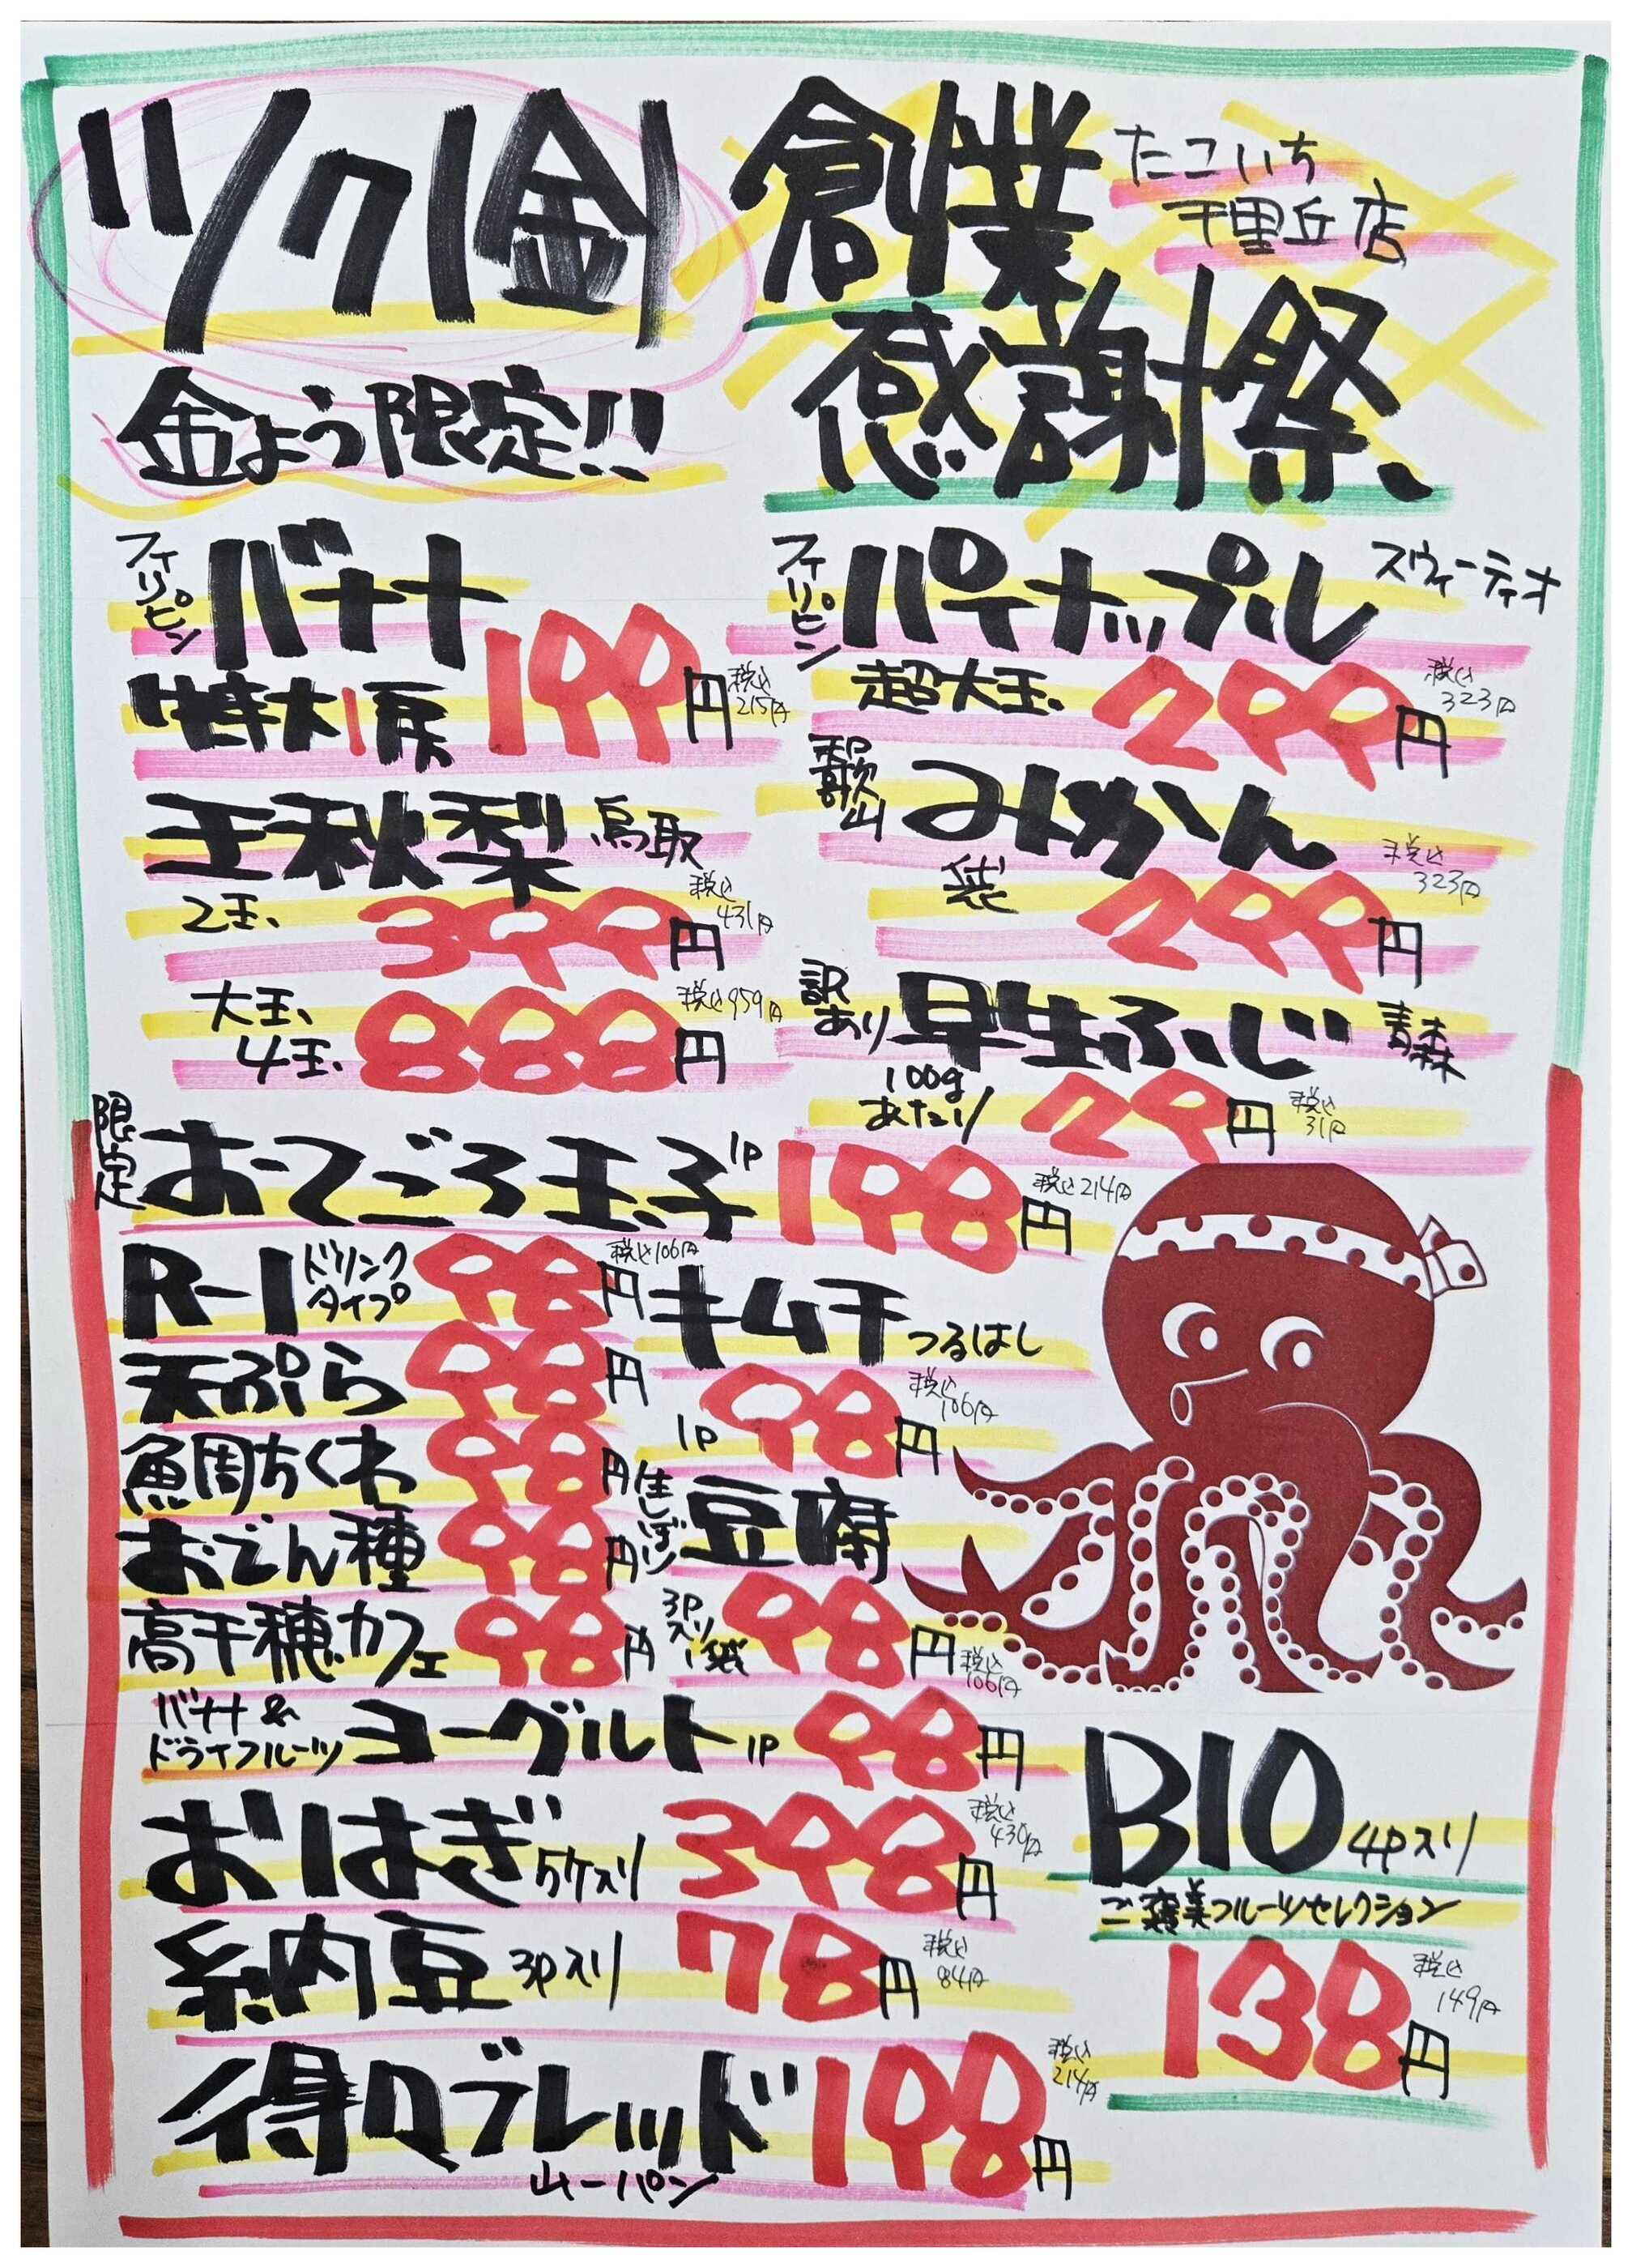 11/7(金)
金よう限定!!
創業
感謝祭
たこいち
千里丘店
フィリピン
バナナ
特大1房
199円
税込
215円
フィリピン
パイナップル
スウィーティオ
超大玉
299円
税込
323円
王秋梨
鳥取
2玉
399円
税込
431円
大玉
4玉
888円
税込959円
和歌山
みかん
袋
299円
税込
323円
訳
あり
早生ふじ
青森
100g
あたり
29円
税込
31円
限定
おてごろ玉子
1P
198円
税込214円
R-1
ドリンク
タイプ
98円
税込106円
天ぷら
98円
魚周ちくわ
98円
おでん種
98円
高千穂カフェ
98円
キムチ
つるはし
1P
98円
税込
106円
生しぼり
豆腐
3P
入り
1袋
98円
税込
106円
バナナ&
ドライフルーツ
ヨーグルト
1P
98円
おはぎ
5ケ入り
398円
税込
430円
糸内豆
3P入り
78円
税込
84円
得々ブレッド
山一パン
198円
税込
214円
BIO
4P入り
ご褒美フルーツセレクション
138円
税込
149円